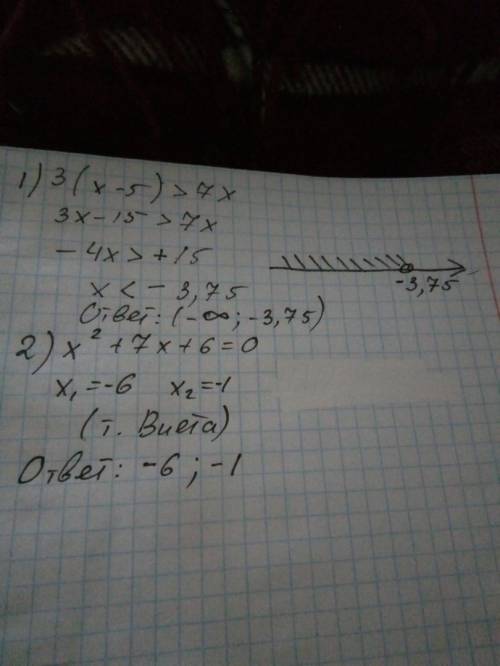 1) 3(x-5)>7x
3x-15>7x
-4x>+15
x<-3,75
-3,75
Ответ: (-∞; -3,75)
2) x²+7x+6=0
x₁=-6 x₂=-1
(т. Виета)
Ответ: -6; -1